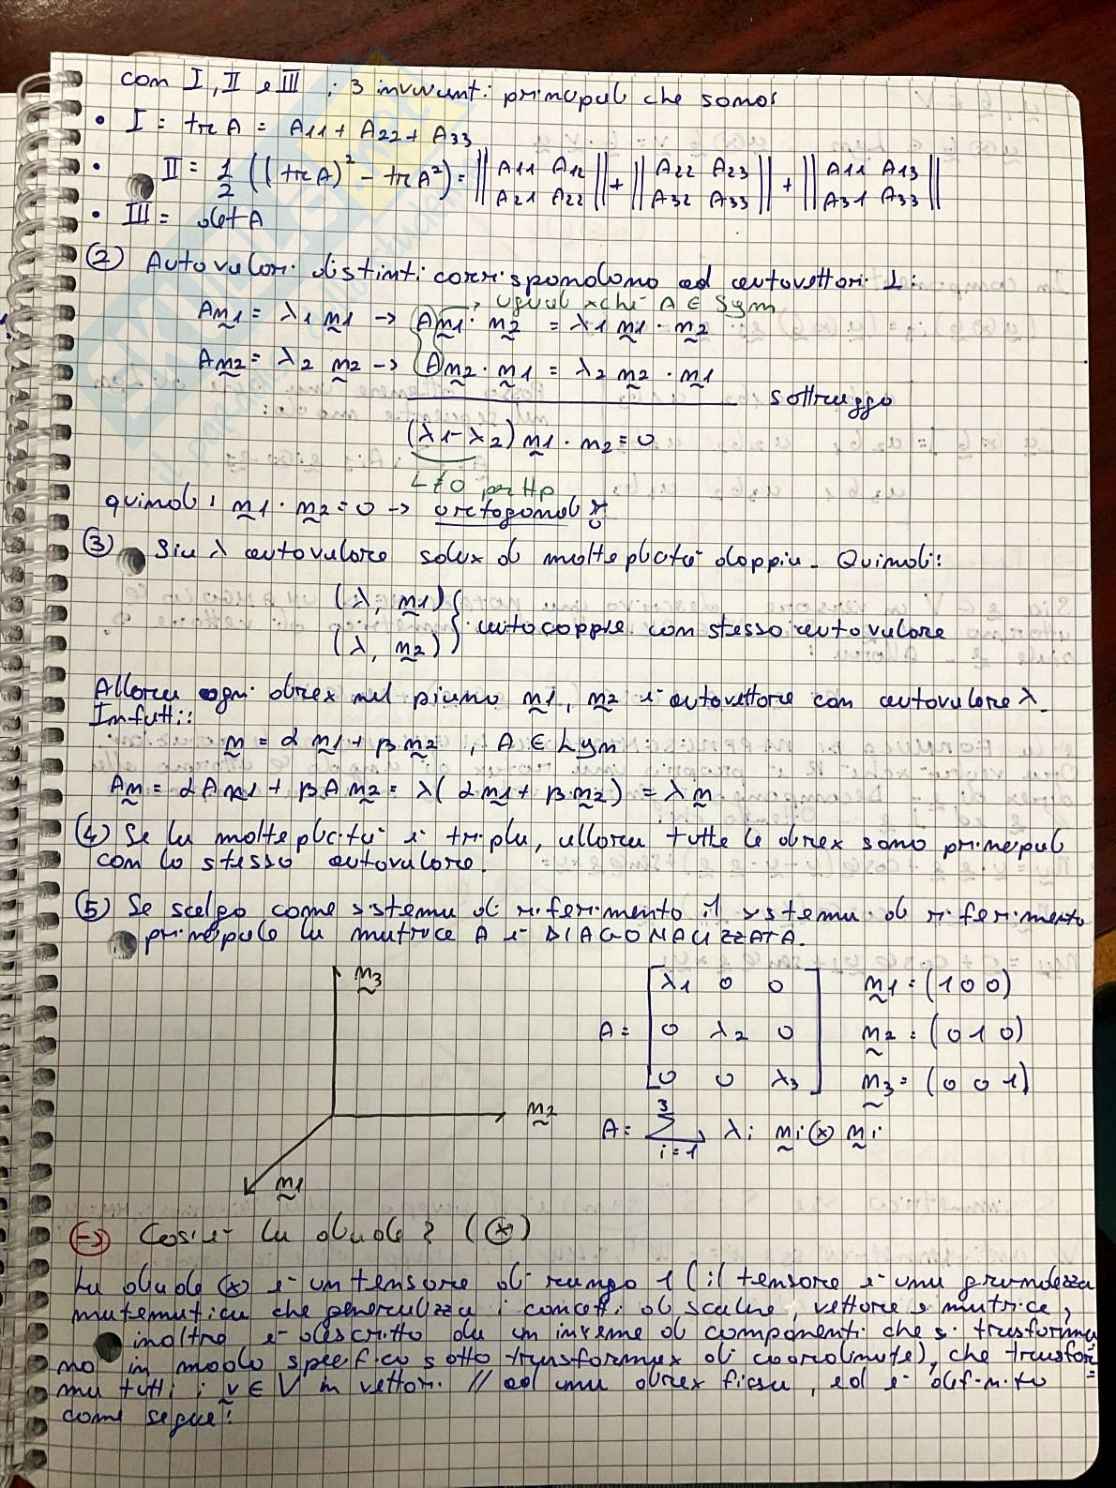 con I, II e III i 3 invarianti principali che sono:
• I = tr A = A11 + A22 + A33
• II = 1/2 ((tr A)² - tr A²) = ||A11 A12 A21 A22|| + ||A22 A23 A32 A33|| + ||A11 A13 A31 A33||
• III = det A
(2) Autovalori distinti corrispondono ad autovettori ⊥:
→ uguali xchè A ∈ Sym
An1 = λ1 n1 → An1 · n2 = λ1 n1 · n2
An2 = λ2 n2 → An2 · n1 = λ2 n2 · n1
sottraggo
(λ1-λ2) n1 · n2 = 0
↳ ≠0 per Hp
quindi: n1 · n2 = 0 → ortogonali
(3) Sia λ autovalore solux di molteplicità doppia. Quindi:
(λ, n1)
(λ, n2) } autocoppie con stesso autovalore
Allora ogni direx nel piano n1, n2 è autovettore con autovalore λ.
Infatti:
n = α n1 + β n2 , A ∈ Lym :
An = α An1 + β An2 = λ(α n1 + β n2) = λ n
(4) Se la molteplicità è tripla, allora tutte le direx sono principali
con lo stesso autovalore.
(5) Se scelgo come sistema di riferimento il sistema di riferimento
principale la matrice A è DIAGONALIZZATA.
n3
n2
n1
A = [λ1 0 0
0 λ2 0
0 0 λ3]
n1 = (1 0 0)
n2 = (0 1 0)
n3 = (0 0 1)
A = Σ i=1 3 λi ni ⊗ ni
(→) Cos'è la diade? (⊗)
La diade ⊗ è un tensore di rango 1 (il tensore è una grandezza
matematica che generalizza i concetti di scalare, vettore e matrice,
inoltre è descritto da un insieme di componenti che si trasforma
no in modo specifico sotto trasformax di coordinate), che trasfor=
ma tutti i v ∈ V in vettori // ad una direx fissa, ed è definito
come segue: